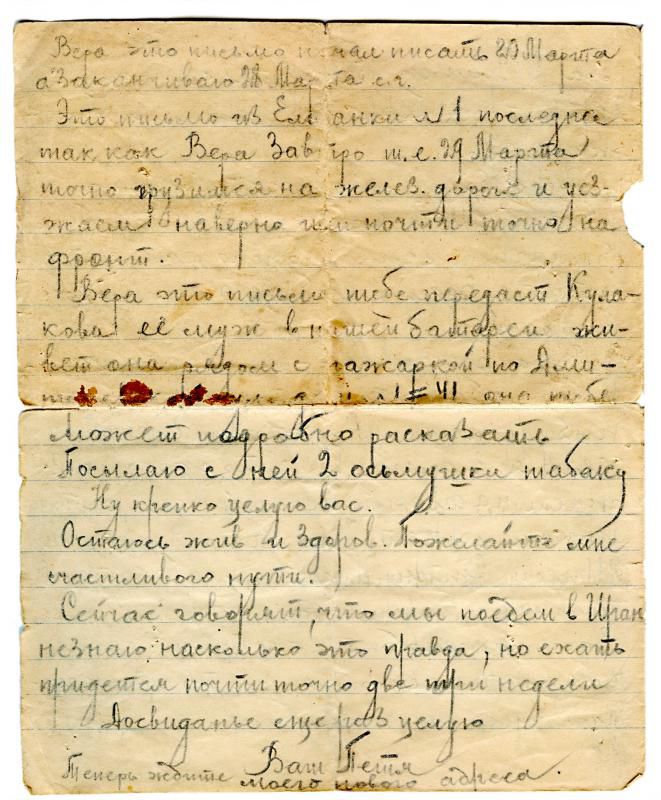 Вера это письмо начал писать 20 Марта
а Заканчиваю 28 Марта с.г.
Это письмо из Еланки № 1 последнее
так как Вера Завтро т.е. 29 Марта
точно грузимся на желез. дороге и уез-
жаем наверно или почти точно на
фронт.
Вера это письмо тебе передаст Кула-
кова её муж в нашей батареи жи-
вет она рядом с пажаркой по
она тебе
может подробно расказать
Посылаю с ней 2 осьмушки табаку
Ну крепко целую вас.
Остаюсь жив и здоров. Пожелайте мне
счастливого пути.
Сейчас говорят, что мы поедем в Иран
незнаю насколько это правда, но ехать
придется почти точно две три недели
Досвиданье еще раз целую
Ваш Петя
Теперь ждите моего нового адреса.